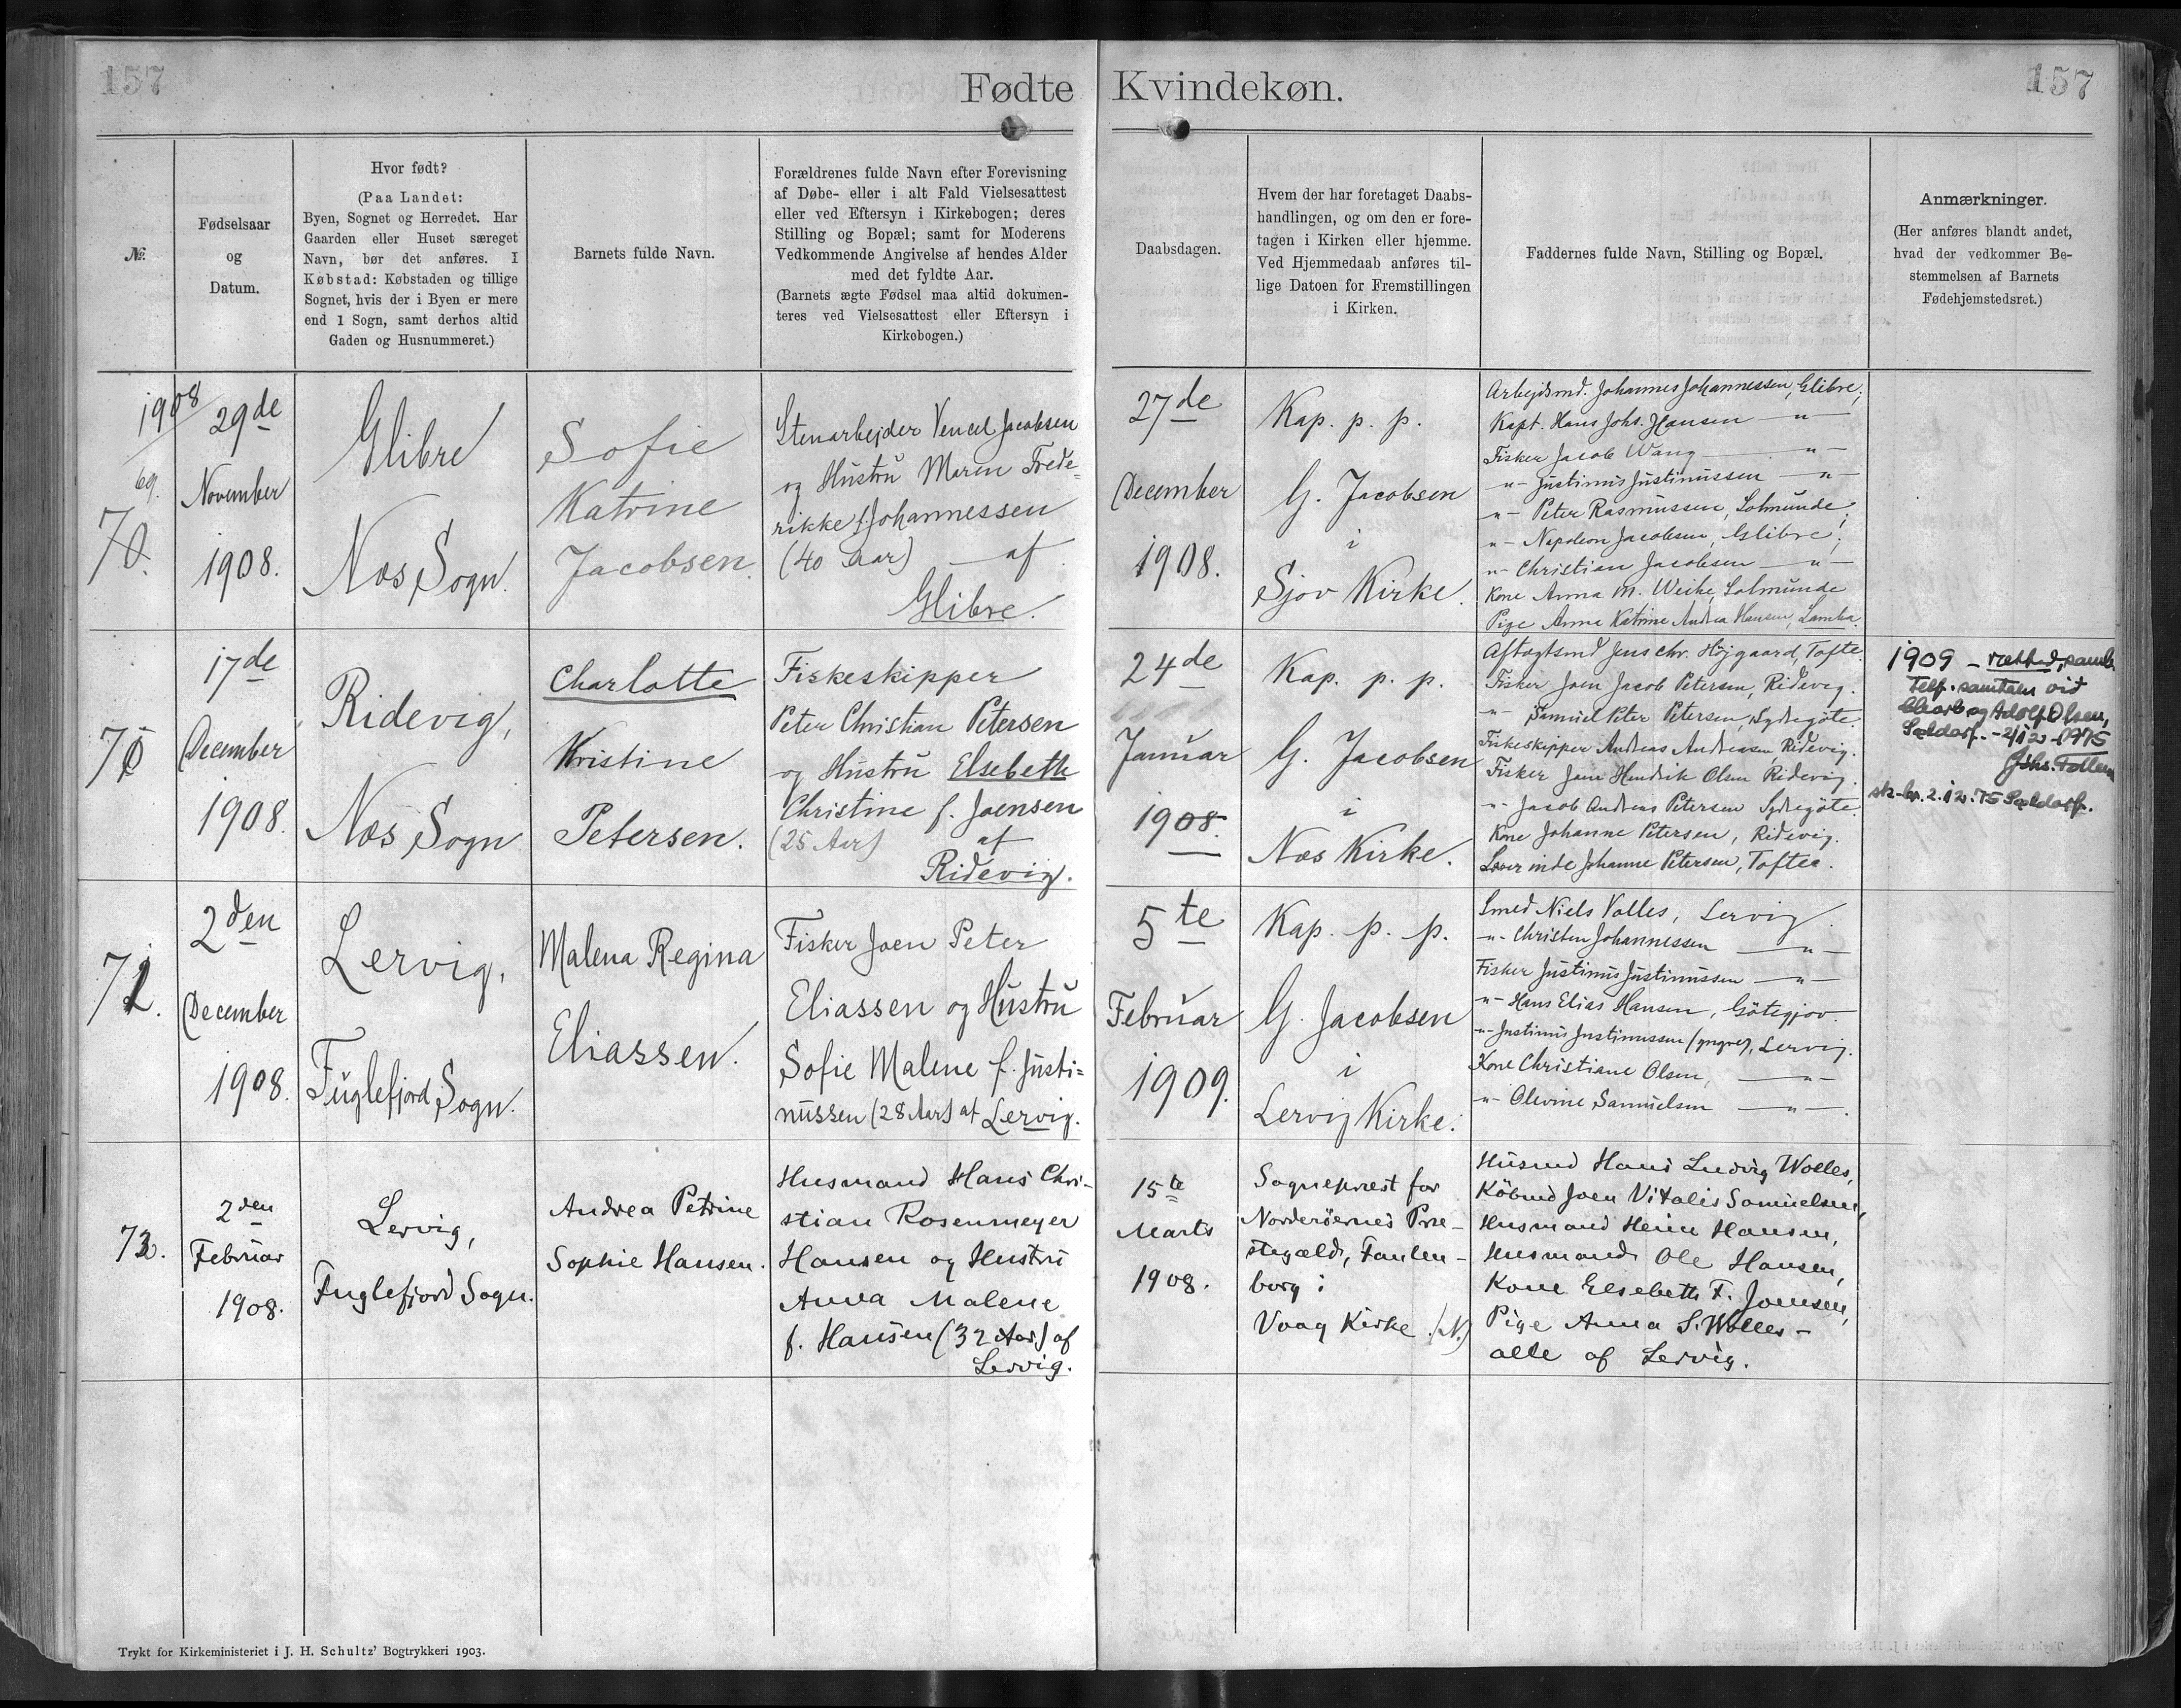 157
Fødte Kvindekøn.
157
№
Fødselsaar
og
Datum.
Hvor født?
(Paa Landet:
Byen, Sognet og Herredet. Har
Gaarden eller Huset særeget
Navn, bør det anføres. I
Købstad: Købstaden og tillige
Sognet, hvis der i Byen er mere
end 1 Sogn, samt derhos altid
Gaden og Husnummeret.)
Barnets fulde Navn.
Forældrenes fulde Navn efter Forevisning
af Døbe- eller i alt Fald Vielsesattest
eller ved Eftersyn i Kirkebogen; deres
Stilling og Bopæl; samt for Moderens
Vedkommende Angivelse af hendes Alder
med det fyldte Aar.
(Barnets ægte Fødsel maa altid dokumen-
teres ved Vielsesattest eller Eftersyn i
Kirkebogen.)
Daabsdagen.
Hvem der har foretaget Daabs-
handlingen, og om den er fore-
tagen i Kirken eller hjemme.
Ved Hjemmedaab anføres til-
lige Datoen for Fremstillingen
i Kirken.
Faddernes fulde Navn, Stilling og Bopæl.
Anmærkninger.
(Her anføres blandt andet,
hvad der vedkommer Be-
stemmelsen af Barnets
Fødehjemstedsret.)
1908
69.
70.
29de
November
1908.
Glibre
Nes Sogn.
Sofie
Katrine
Jacobsen.
Stenarbejder Vencel Jacobsen
og Hustru Maren Frede-
rikke f. Johannessen
(40 Aar) af
Glibre.
27de
December
1908.
Kap. p. p.
G. Jacobsen
i
Sjov Kirke.
Arbejdsmd. Johannes Johannessen, Glibre;
Kapt. Hans Johs. Hansen -"-
Fisker Jacob Wang -"-
-"- Justinus Justinussen -"-
-"- Peter Rasmussen, Solmunde;
-"- Napoleon Jacobsen, Glibre;
-"- Christian Jacobsen -"-
Kone Anna M. Weihe, Solmunde
Pige Anna Katrine Andrea Hansen, Lamba.
71
17de
December
1908.
Ridevig,
Nes Sogn
Charlotte
Kristine
Petersen.
Fiskeskipper
Peter Christian Petersen
og Hustru Elsebeth
Christine f. Joensen
(25 Aar) af
Ridevig.
24de
Januar
1908.
Kap. p. p.
G. Jacobsen
i
Nes Kirke.
Aftægtsmd Jens Chr. Højgaard, Tofte.
Fisker Joen Jacob Petersen, Ridevig.
-"- Samuel Peter Petersen, Sydregöte.
Fiskeskipper Andreas Andreasen, Ridevig.
Fisker Jens Hendrik Olsen Ridevig.
-"- Jacob Andreas Petersen Sydregöte.
Kone Johanne Petersen, Ridevig.
Lærerinde Johanne Petersen, Toftea.
1909 - rættað, samb.
Telf. samtalu við
Adolf Olsen,
Saldarf. - 2/12 - 1975
Johs.
2.12.75 Saldarf.
72.
2den
December
1908.
Lervig,
Fuglefjord Sogn.
Malena Regina
Eliassen.
Fisker Joen Peter
Eliassen og Hustru
Sofie Malene f. Justi-
nussen (28 Aar) af Lervig.
5te
Februar
1909.
Kap. p. p.
G. Jacobsen
i
Lervig Kirke.
Smed Niels Volles, Lervig
-"- Christen Johannessen -"-
Fisker Justinus Justinussen -"-
-"- Hans Elias Hansen, Götegjov.
-"- Justinus Justinussen (yngre), Lervig.
Kone Christiane Olsen, -"-
-"- Olevine Samuelsen -"-.
73.
2den
Februar
1908.
Lervig,
Fuglefjord Sogn.
Andrea Petrine
Sophie Hansen.
Husmand Hans Chri-
stian Rosenmeyer
Hansen og Hustru
Anna Malene
f. Hansen (32 Aar) af
Lervig.
15te
Marts
1908.
Sognepræst for
Norderöernes Præ-
stegæld, Fanlen-
borg i
Vaag Kirke (N.)
Husmd Hans Ludvig Wolles,
Købmd Joen Vitalis Samuelsen,
Husmand Heine Hansen,
Husmand Ole Hansen,
Kone Elsebeth F. Joensen,
Pige Anna S. Wolles -
alle af Lervig.
Trykt for Kirkeministeriet i J. H. Schultz' Bogtrykkeri 1903.